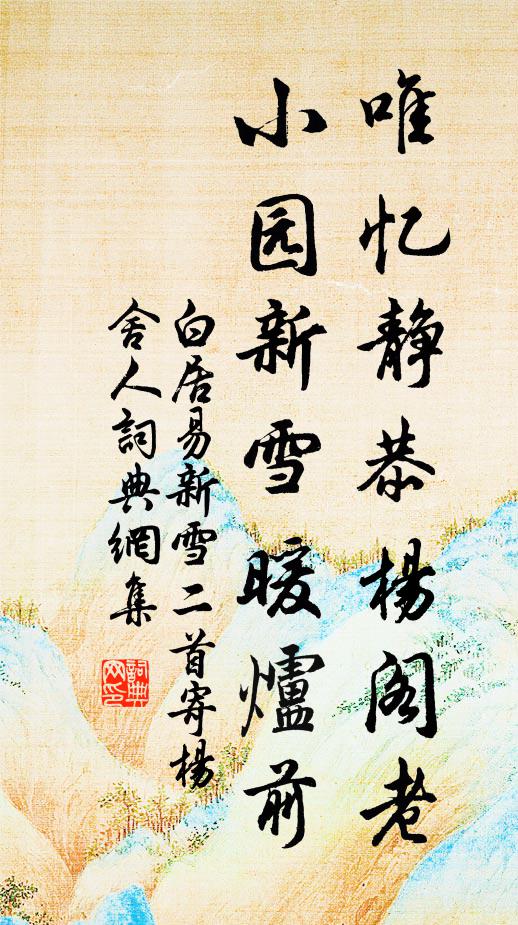 唯忆静恭楊阁老
小园新雪暖爐前
白居易新雪二首寄楊
舍人詞典網集
詞典
网印